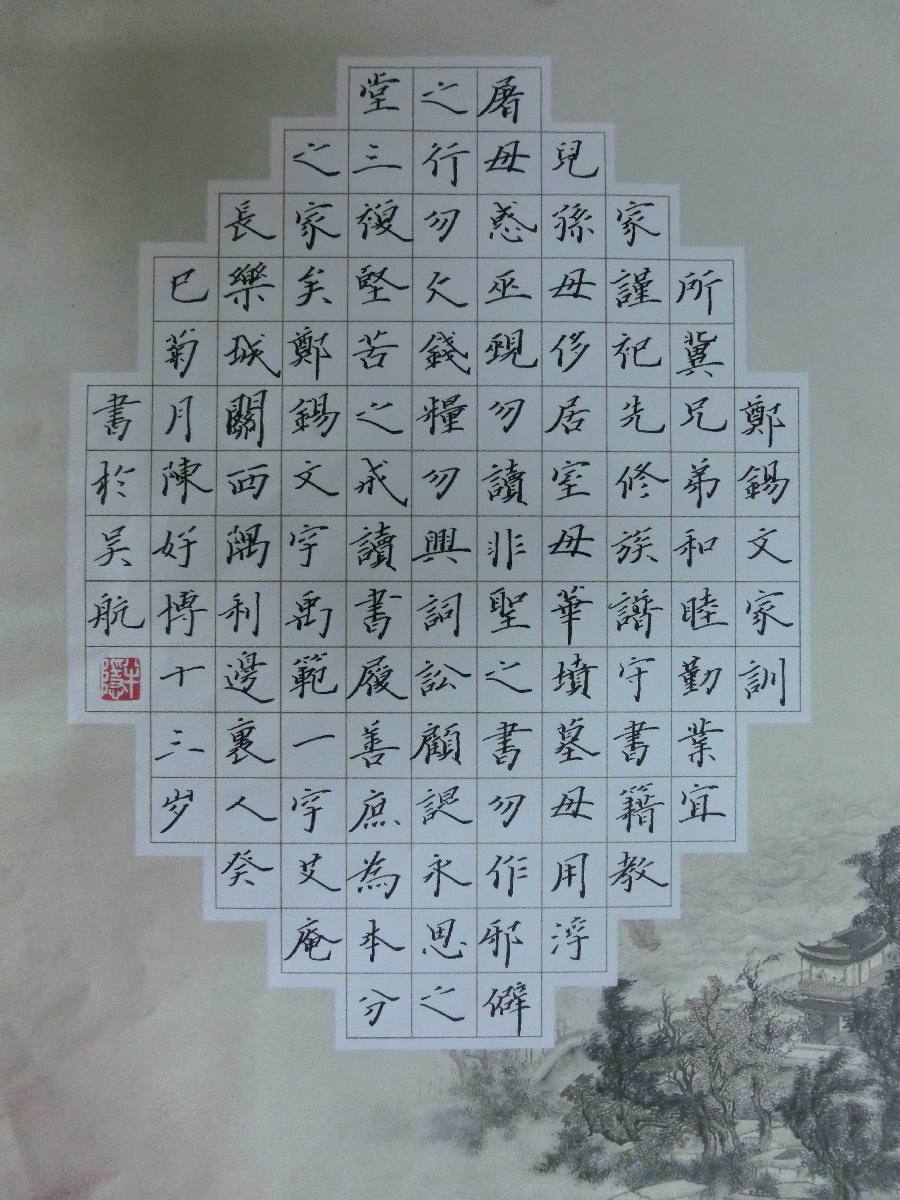 鄭錫文家訓
所冀兄弟和睦勤業宜
家謹祀先修族譜守書籍教
兒孫毋侈居室毋華墳墓毋用浮
屠毋惑巫覡勿讀非聖之書勿作邪僻
之行勿欠錢糧勿興詞訟顧諟永思之
堂三復堅苦之戒讀書履善庶為本分
之家矣鄭錫文字禹範一字艾庵
長樂城關西隅利邊裏人癸
巳菊月陳好博十三岁
書於吴航